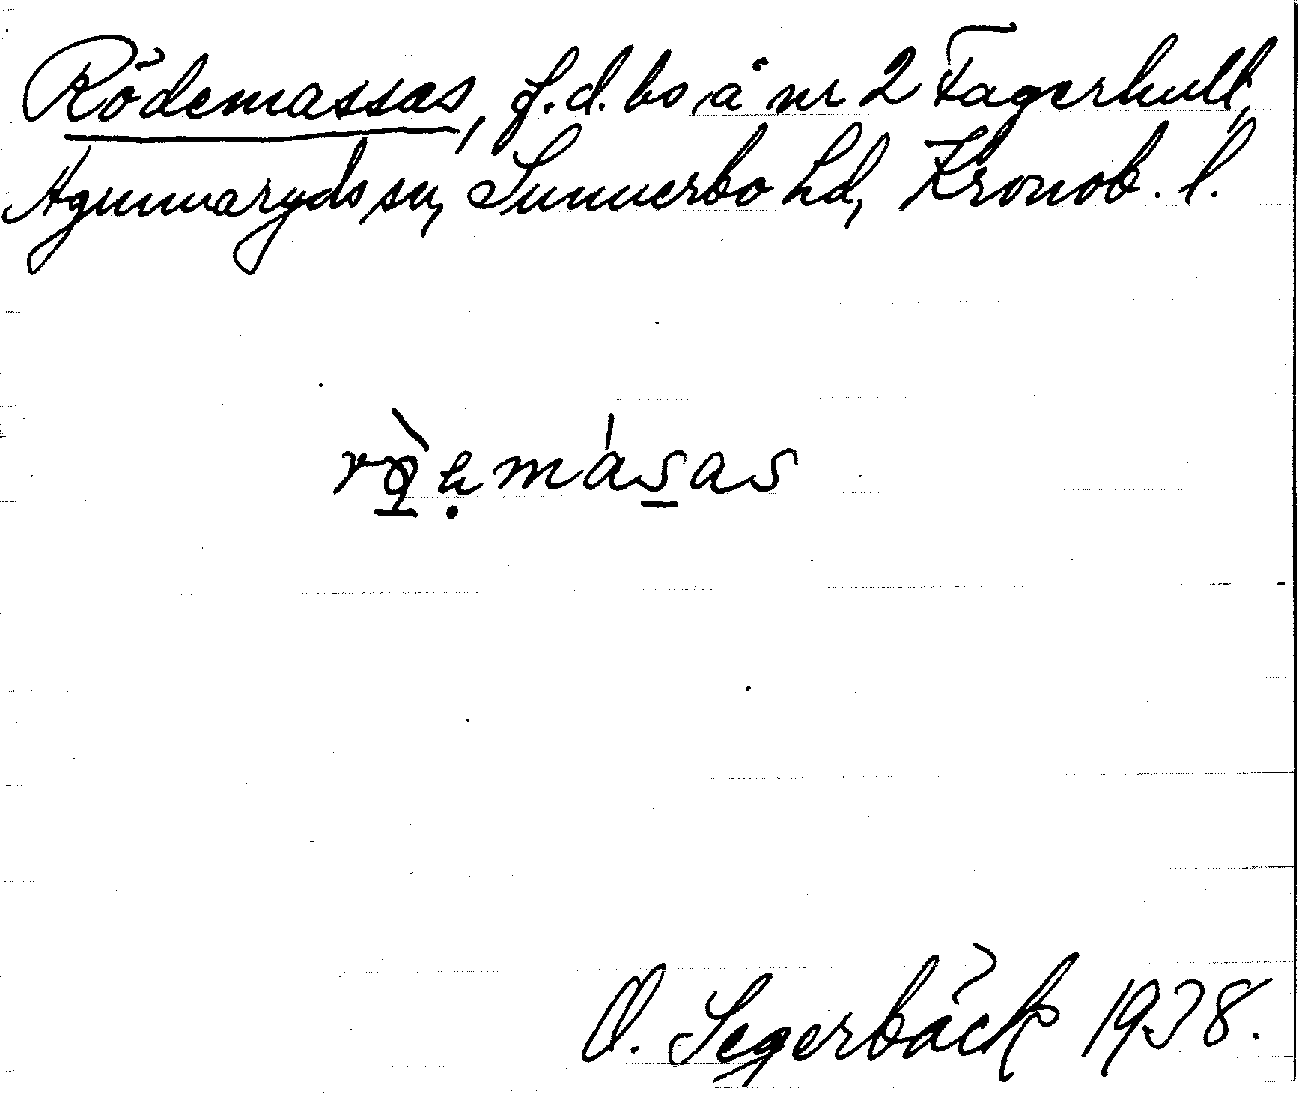 Rödemassas, f.d. bo å nr 2 Fagerhult,
Agunnaryds sn, Sunnerbo hd, Kronob. l.
O. Segerbäck 1938.